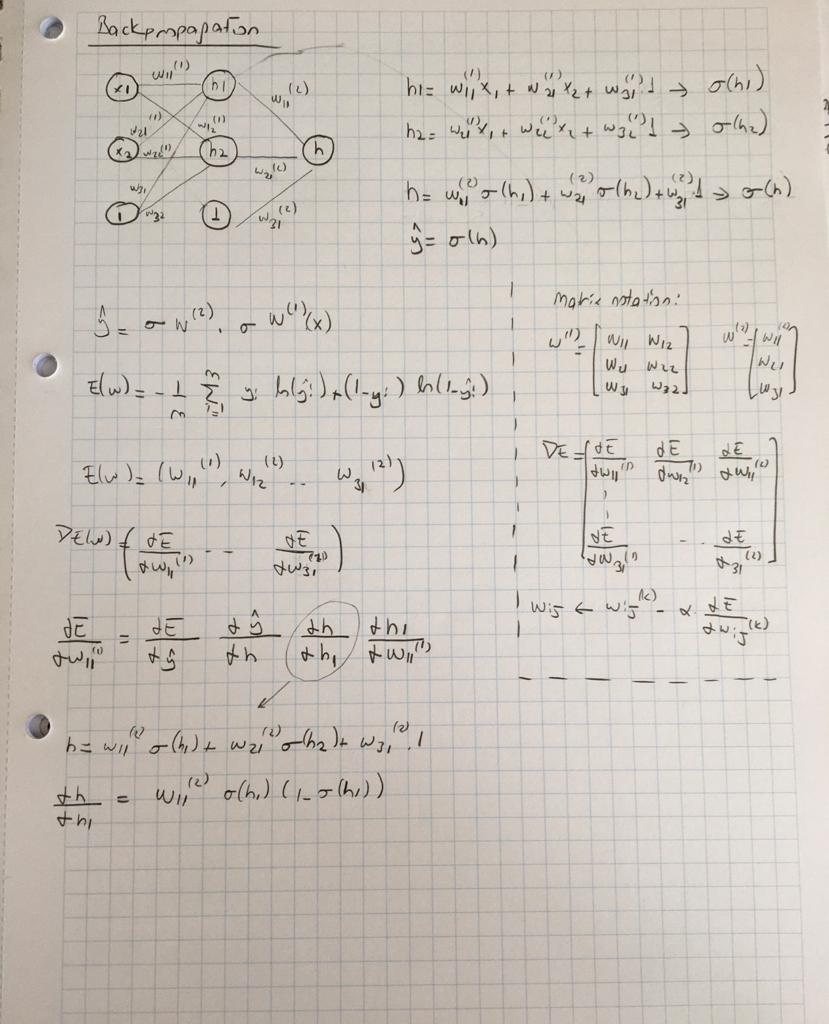 Backpropagation
x1 w11^(1) h1 w11^(2)
w21^(1) w12^(1)
x2 w22^(1) h2 w21^(2) h
w31
1 w32 1 w31^(2)
h1 = w11^(1) x1 + w21^(1) x2 + w31^(1) . 1 → σ(h1)
h2 = w21^(1) x1 + w22^(1) x2 + w32^(1) 1 → σ(h2)
h = w11^(2) σ(h1) + w21^(2) σ(h2) + w31^(2) . 1 → σ(h)
ŷ = σ(h)
ŷ = σ W^(2) . σ W^(1)(x)
E(w) = - 1/m Σ_{i=1}^m yi ln(ŷi) + (1-yi) ln(1-ŷi)
E(w) = (W11^(1), W12^(2) .. W31^(2))
∇E(w) = (dE/dw11^(1) .. dE/dw31^(2))
dE/dw11^(1) = dE/dŷ dŷ/dh dh/dh1 dh1/dw11^(1)
h = w11^(2) σ(h1) + w21^(2) σ(h2) + w31^(2) . 1
dh/dh1 = w11^(2) σ(h1) (1 - σ(h1))
Matrix notation:
w^(1) = [w11 w12
w21 w22
w31 w32]
w^(2) = [w11^(2)
w21
w31]
∇E = [dE/dw11^(1) dE/dw12^(1) dE/dw11^(2)
dE/dw31^(1) .. dE/d31^(2)]
wij ← wij^(k) - α . dE/dwij^(k)